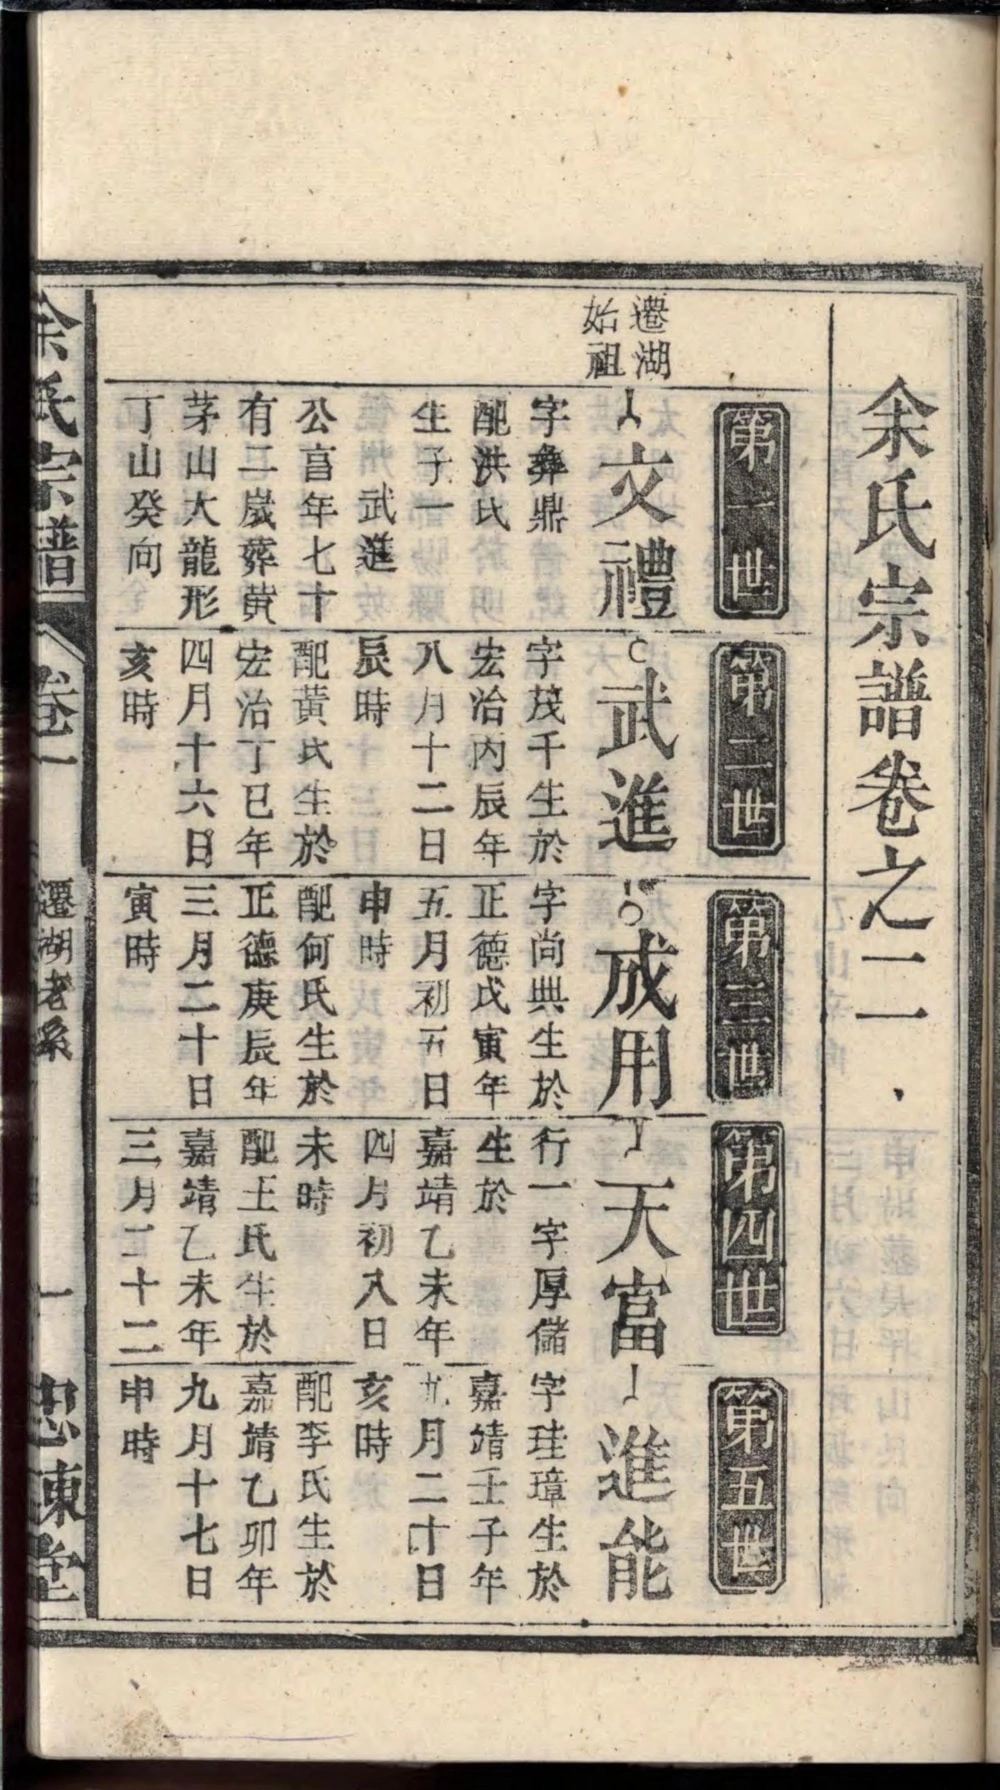 余氏宗譜卷之二
第一世
遷湖
始祖
文禮
字彝鼎
配洪氏
生子一
武進
公享年七十
有二歲葬黃
茅山大龍形
丁山癸向
第二世
武進
字茂千生於
宏治丙辰年
八月十二日
辰時
配黃氏生於
宏治丁巳年
四月十六日
亥時
第三世
成用
字尚興生於
正德戊寅年
五月初五日
申時
配何氏生於
正德庚辰年
三月二十日
寅時
第四世
天富
行一字厚儲
生於
嘉靖乙未年
四月初八日
未時
配王氏生於
嘉靖乙未年
三月二十二
第五世
進能
字珪璋生於
嘉靖壬子年
九月二十日
亥時
配李氏生於
嘉靖乙卯年
九月十七日
申時
余氏宗譜
卷二
遷湖老系
一
忠諫堂